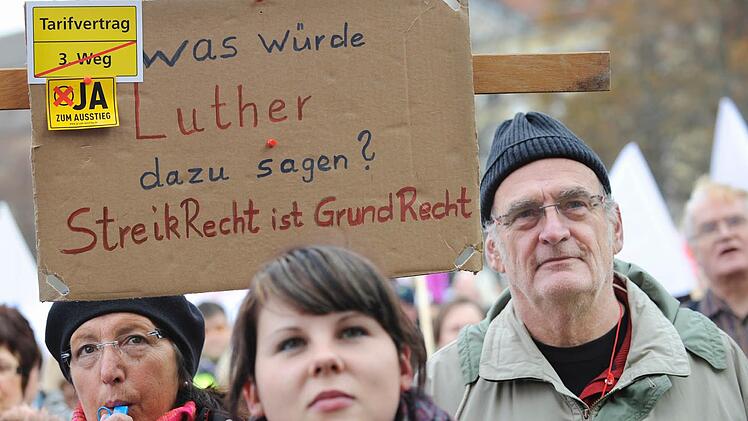 Tarifvertrag
3. Weg
JA
ZUM AUSSTIEG
was würde
Luther
dazu sagen?
StreikRecht ist GrundRecht